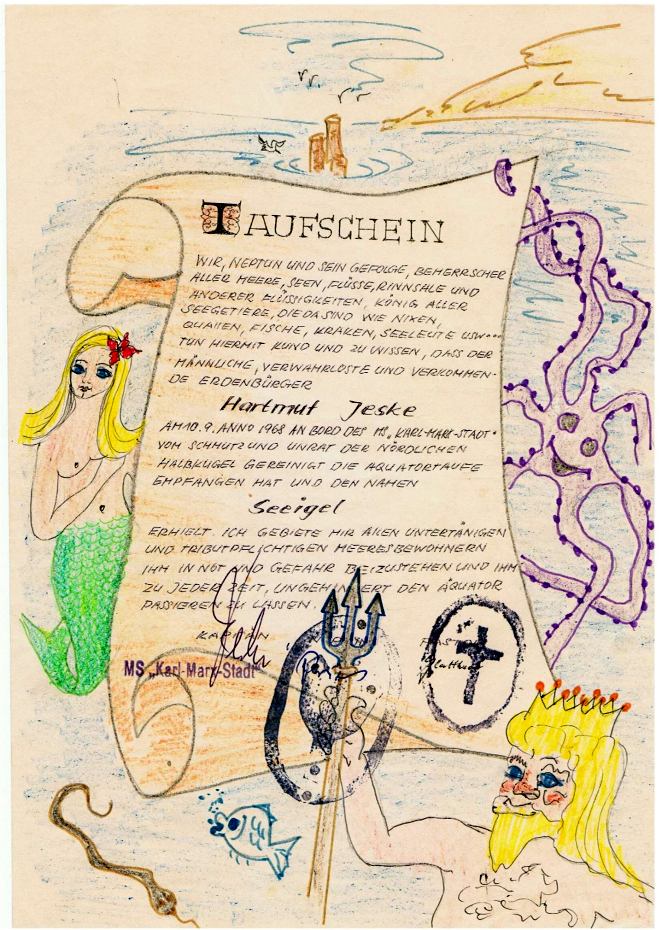 TAUFSCHEIN
WIR, NEPTUN UND SEIN GEFOLGE, BEHERRSCHER
ALLER MEERE, SEEN, FLÜSSE, RINNSALE UND
ANDERER FLÜSSIGKEITEN, KÖNIG ALLER
SEEGETIERE, DIE DA SIND WIE NIXEN,
QUALLEN, FISCHE, KRAKEN, SEELEUTE USW...
TUN HIERMIT KUND UND ZU WISSEN, DASS DER
MÄNNLICHE, VERWAHRLOSTE UND VERKOMMEN-
DE ERDENBÜRGER
Hartmut Jeske
AM 10. 9. ANNO 1968 AN BORD DES MS „KARL-MARX-STADT"
VOM SCHMUTZ UND UNRAT DER NÖRDLICHEN
HALBKUGEL GEREINIGT DIE ÄQUATORTAUFE
EMPFANGEN HAT UND DEN NAMEN
Seeigel
ERHIELT. ICH GEBIETE MIR ALLEN UNTERTÄNIGEN
UND TRIBUTPFLICHTIGEN MEERESBEWOHNERN
IHM IN NOT UND GEFAHR BEIZUSTEHEN UND IHM
ZU JEDER ZEIT, UNGEHINDERT DEN ÄQUATOR
PASSIEREN ZU LASSEN.
KAPITÄN
MS „Karl-Marx-Stadt"